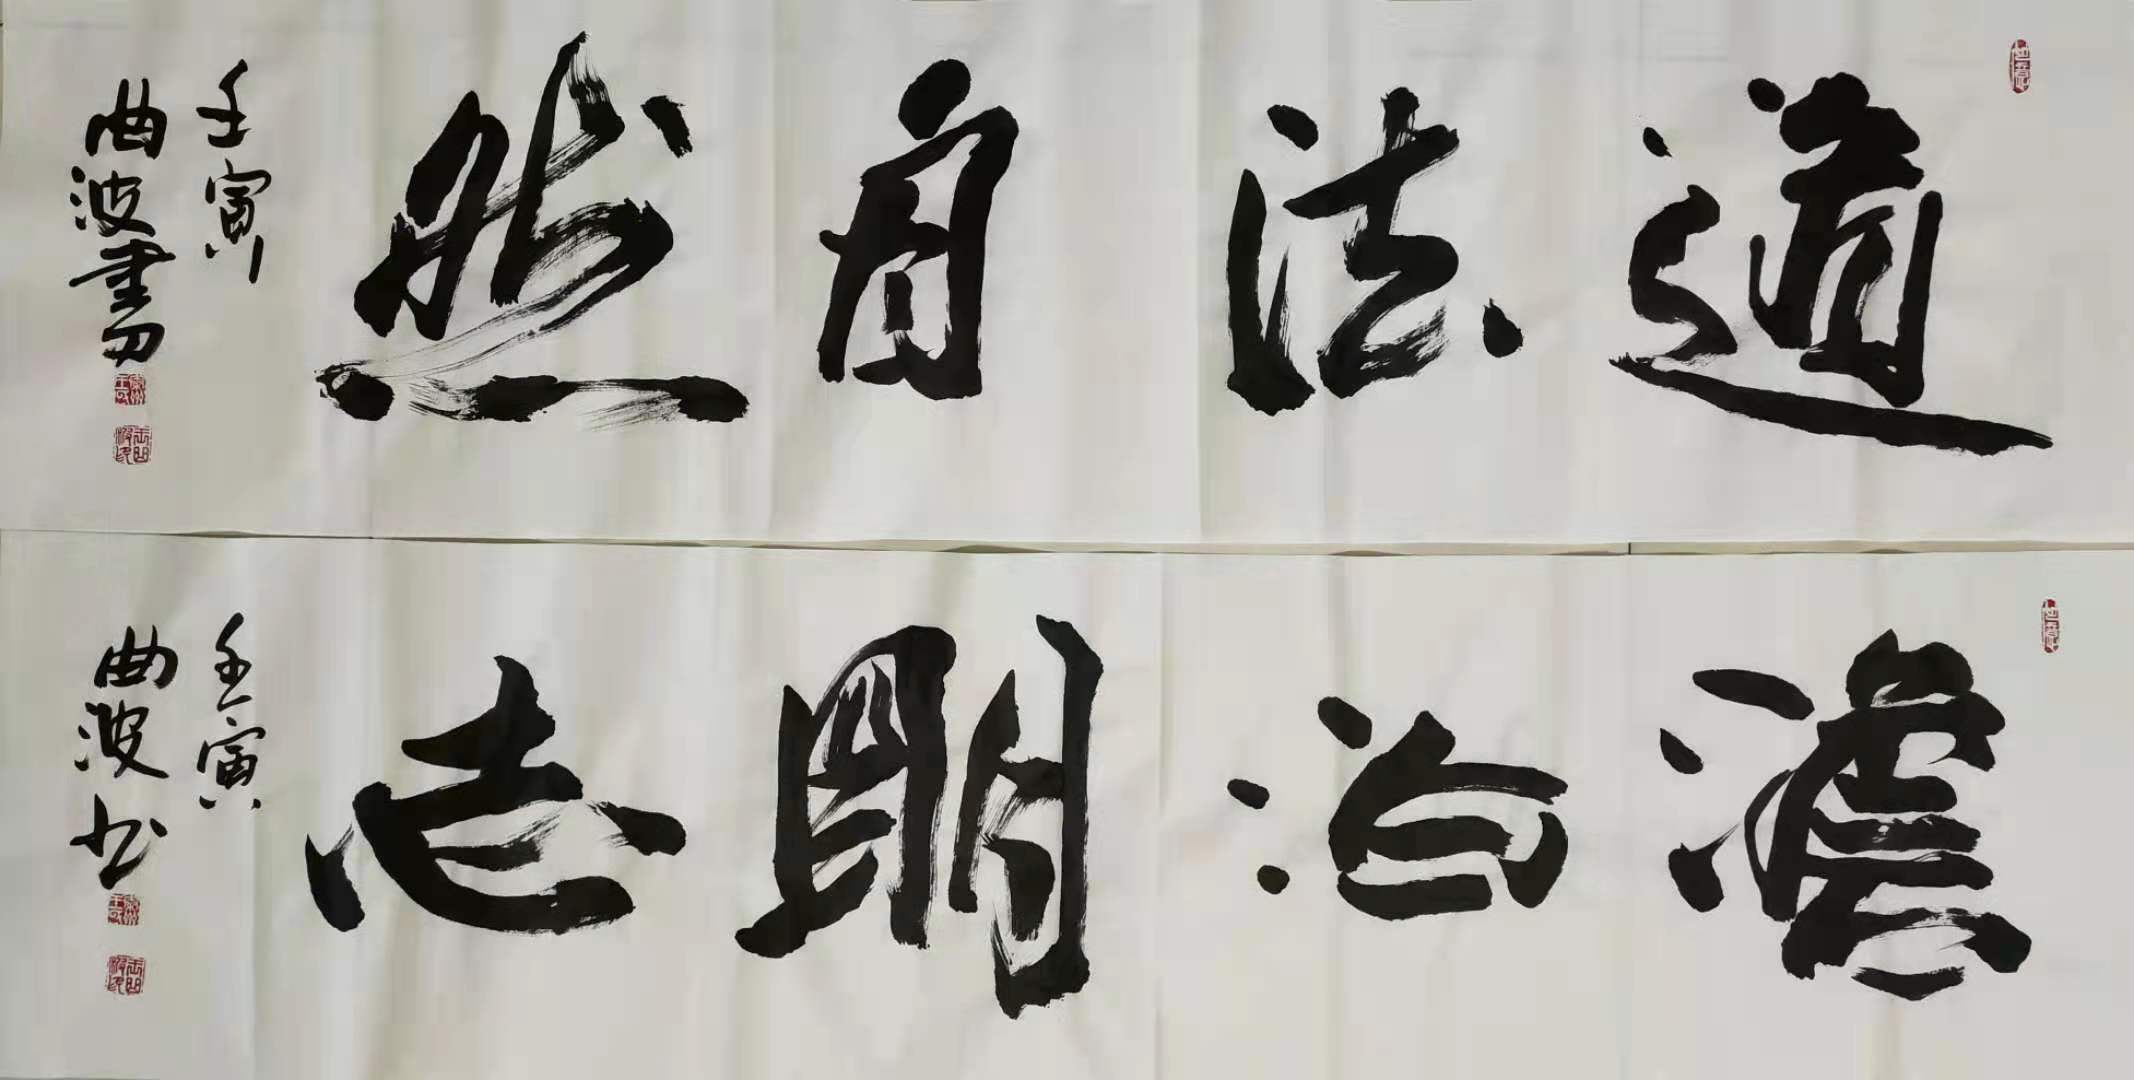 道法自然
壬寅
曲波書
澹泊明志
壬寅
曲波书